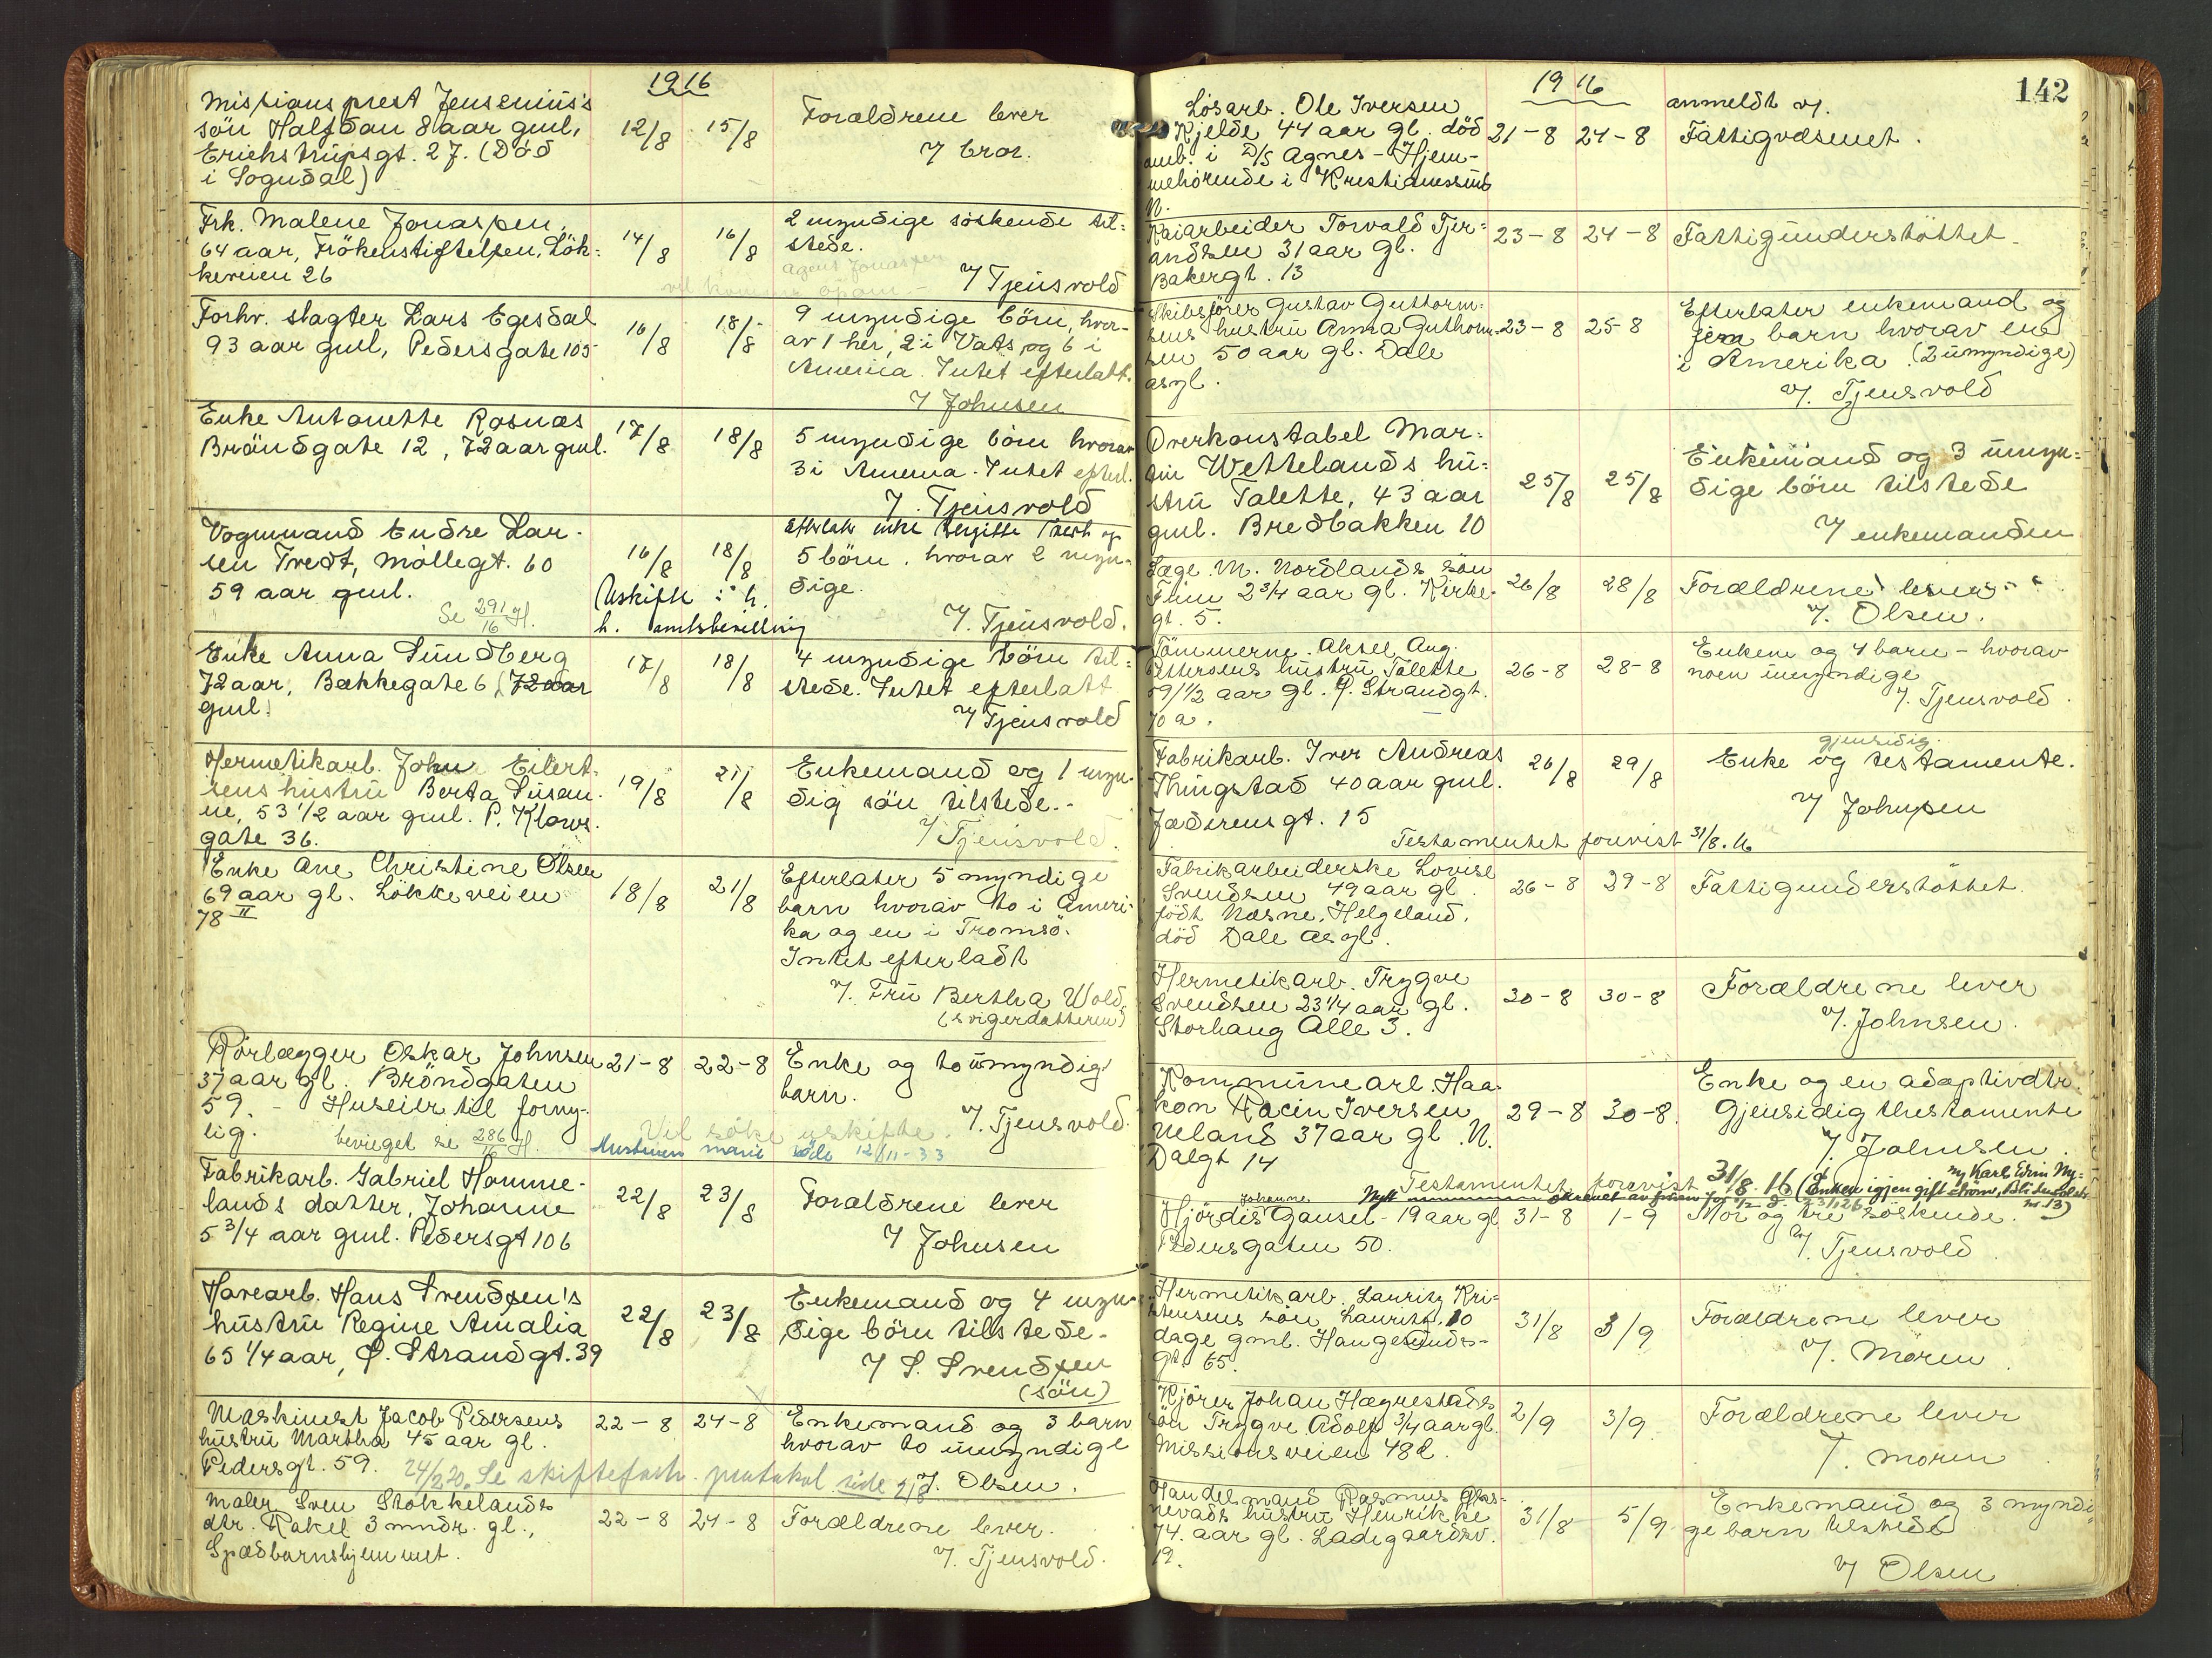 1916
Missions prest Jensenius's
sön Halfdan 8 aar gml,
Erichstrupsgt. 27. (Död
i Sogndal)
12/8 15/8
Forældrene lever
v/ bror.
Frk. Malene Jonassen,
64 aar, Frökenstiftelsen, Lök-
keveien 26
14/8 16/8
2 myndige söskende til-
stede.
v/ Tjensvold
Forhv. slagter Lars Egesdal
93 aar gml, Pedersgate 105
16/8 18/8
9 myndige börn, hver-
av 1 her, 2 i Vats, og 6 i
Amerika. Intet efterlatt.
v/ Johnsen
Enke Antonette Rosnæs
Bröndgate 12, 72 aar gml.
17/8 18/8
5 myndige börn hvorav
3 i Amerika. Intet efterl.
v/ Tjensvold
Vognmand Endre Lar-
sen Tvedt, Möllegt. 60
59 aar gml.
Se 291/16 H.
16/8 18/8
Uskifte i h.
h. amtsbevilling
Efterlate enke Bergitte Tvedt og
5 börn, hvorav 2 myn-
dige.
v/. Tjensvold.
Enke Anna Sundberg
72 aar, Bækkegate 6, 72 aar
gml.
17/8 18/8
4 myndige börn til-
stede. Intet efterlatt
v/ Tjensvold
Hermetikarb. John Eilert-
sens hustru Berta Susan-
ne, 53 1/2 aar gml. P. Klows
gate 36.
19/8 21/8
Enkemand og 1 myn-
dig sön tilstede.-
v/ Tjensvold.
Enke Ane Christine Olsen
69 aar gl. Lökkeveien
78 II
18/8 21/8
Efterlater 5 myndige
barn hvorav to i Ameri-
ka og en i Tromsö.
Intet efterladt
v/. Fru Bertha Wold,
(svigerdatteren)
Rörlægger Oskar Johnsen
37 aar gl. Bröndgaten
59. - Huseier til forny-
lig.
bevieget se 286/16 H.
21-8 22-8
Enke og to umyndig
barn.
v/. Tjensvold.
Vil söke uskifte.
12/11-33
Fabrikarb. Gabriel Homme-
lands datter, Johanne
5 3/4 aar gml. Pedersgt 106
22/8 23/8
Forældrene lever
v/ Johnsen
Havearb. Hans Svendsen's
hustru Regine Amalia
65 1/4 aar, Ö. Strandgt. 39
22/8 23/8
Enkemand og 4 myn-
dige börn tilstede-
v/ S. Svendsen
(sön)
Maskinist Jacob Pedersens
hustru Martha 45 aar gl.
Pedersgt. 59.
22-8 24-8
Enkemand og 3 barn
hvorav to umyndige
v/. Olsen.
24/2 20. Se skifteforh. protokol side 218
Maler Sven Stokkelands
dtr. Rakel 3 mndr. gl.,
Spædbarnshjemmet.
22-8 24-8
Forældrene lever.
v/. Tjensvold.
142
1916
Lösarb. Ole Iversen
Kjelde 44 aar gl. död
omb. i D/S Agnes - Hjem-
mehörende i Kristianssund
N.
21-8 24-8
anmeldt v/.
Fattigvæsenet.
Kaiarbeider Torvald Tjer-
andsen 31 aar gl.
Bakergt. 13
23-8 24-8
Fattigunderstöttet.
Skibsförer Gustav Guttorm-
sens hustru Anna Guthorm-
sen 50 aar gl. Dale
asyl.
23-8 25-8
Efterlater enkemand og
fem barn hvorav en
i Amerika. (2 umyndige)
v/. Tjensvold
Overkonstabel Mar-
tin Wettelands hu-
stru Talette, 43 aar
gml. Bredbakken 10
25/8 25/8
Enkemand og 3 umyn-
dige börn tilstede
v/ enkemanden
Læge M. Nordlands sön
Finn 2 3/4 aar gl. Kirke-
gt. 5.
26/8 28/8
Forældrene lever
v/. Olsen.
Tömmerm. Aksel Aug.
Pettersens hustru Talette
59 1/2 aar gl. Ö. Strandgt.
70 a.
26-8 28-8
Enkem og 4 barn - hvorav
noen umyndige
v/. Tjensvold.
Fabrikarb. Iver Andreas
Thingstad 40 aar gml.
Jæderensgt. 15
26/8 29/8
gjensidig.
Enke og testamente.
v/ Johnsen
Testamentet forevist 31/8.16
Fabrikarbeiderske Lovise
Svendsen 49 aar gl.
födt Næsne, Helgeland,
död Dale Asyl.
26-8 29-8
Fattigunderstöttet.
Hermetikarb. Trygve
Svendsen 23 1/4 aar gl.
Storhaug Alle 3.
30-8 30-8
Forældrene lever
v/. Johnsen.
Kommunearb. Haa-
kon Racin Iversen
Ueland 37 aar gl. N.
Dalgt 14
29-8 30-8.
Enke og en adoptivdtr.
Gjensidig thestamente
v/. Johnsen.
Testamentet forevist 31/8 16 (Enken igjen gift
Hjördis Johanne Gausel - 19 aar gl
Pedersgaten 50.
31-8 1-9
Mor og tre söskende.
v/. Tjensvold
Hermetikarb. Lauritz Kri-
stensens sön Lauritz, 10
dage gml. Haugesunds-
gt 65.
31/8 3/9
Forældrene lever
v/. Moren.
Kjörer Johan Hægrestads
sön Trygve Adolf 3/4 aar gl.
Missionsveien 48 d.
2/9 3/9.
Forældrene lever
v/. moren
Handelsmand Rasmus
hustru Henrikke
74. aar gl. Ladegaardsv.
12.
31/8 5/9
Enkemand og 3 myndi-
ge barn tilstede
v/ Olsen